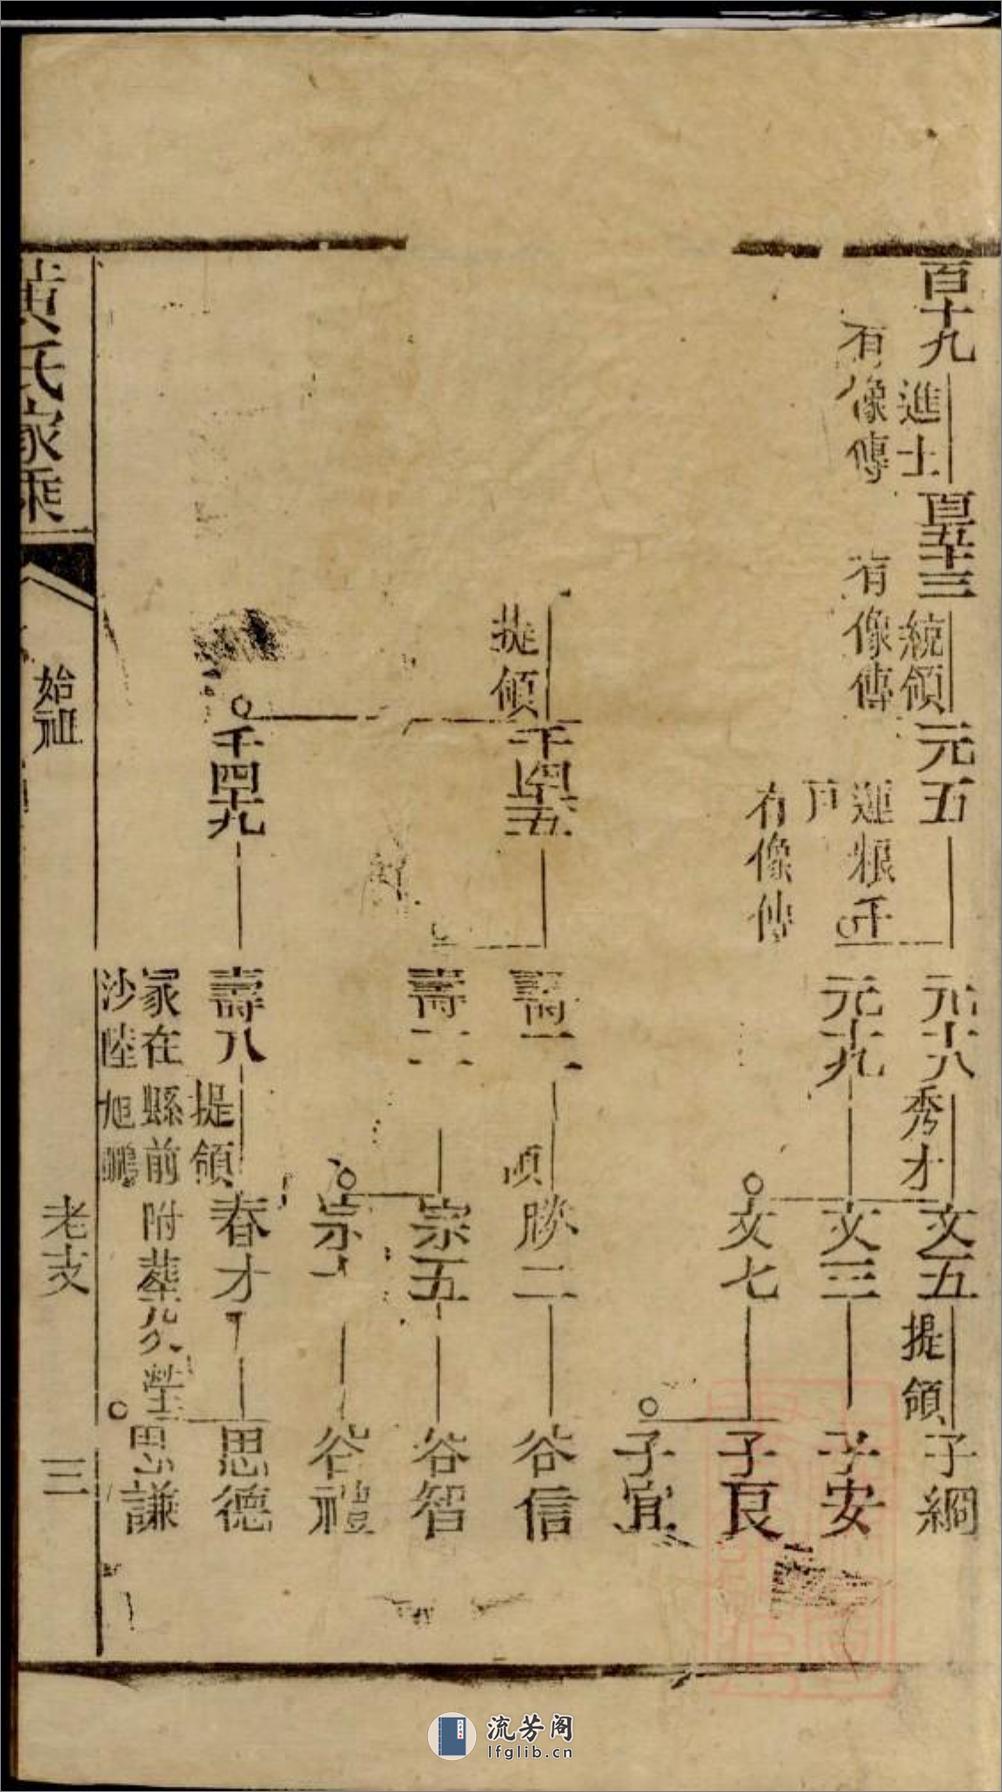 百十九
進士
有像傳
百五十三
統領
有像傳
元五
運粮千
戶
有像傳
元十八
秀才
元十九
文五
提領
文三
文七
子綱
子安
子良
子宜
提領
千四十五
千四十九
壽一
壽二
壽八
提領
家在縣前
沙陸旭鵬
勝二
宗五
宗
春才
附葬
塋
谷信
谷智
谷禮
思德
思謙
黃氏家乘
始祖
老支
三
流芳阁
lfglib.cn